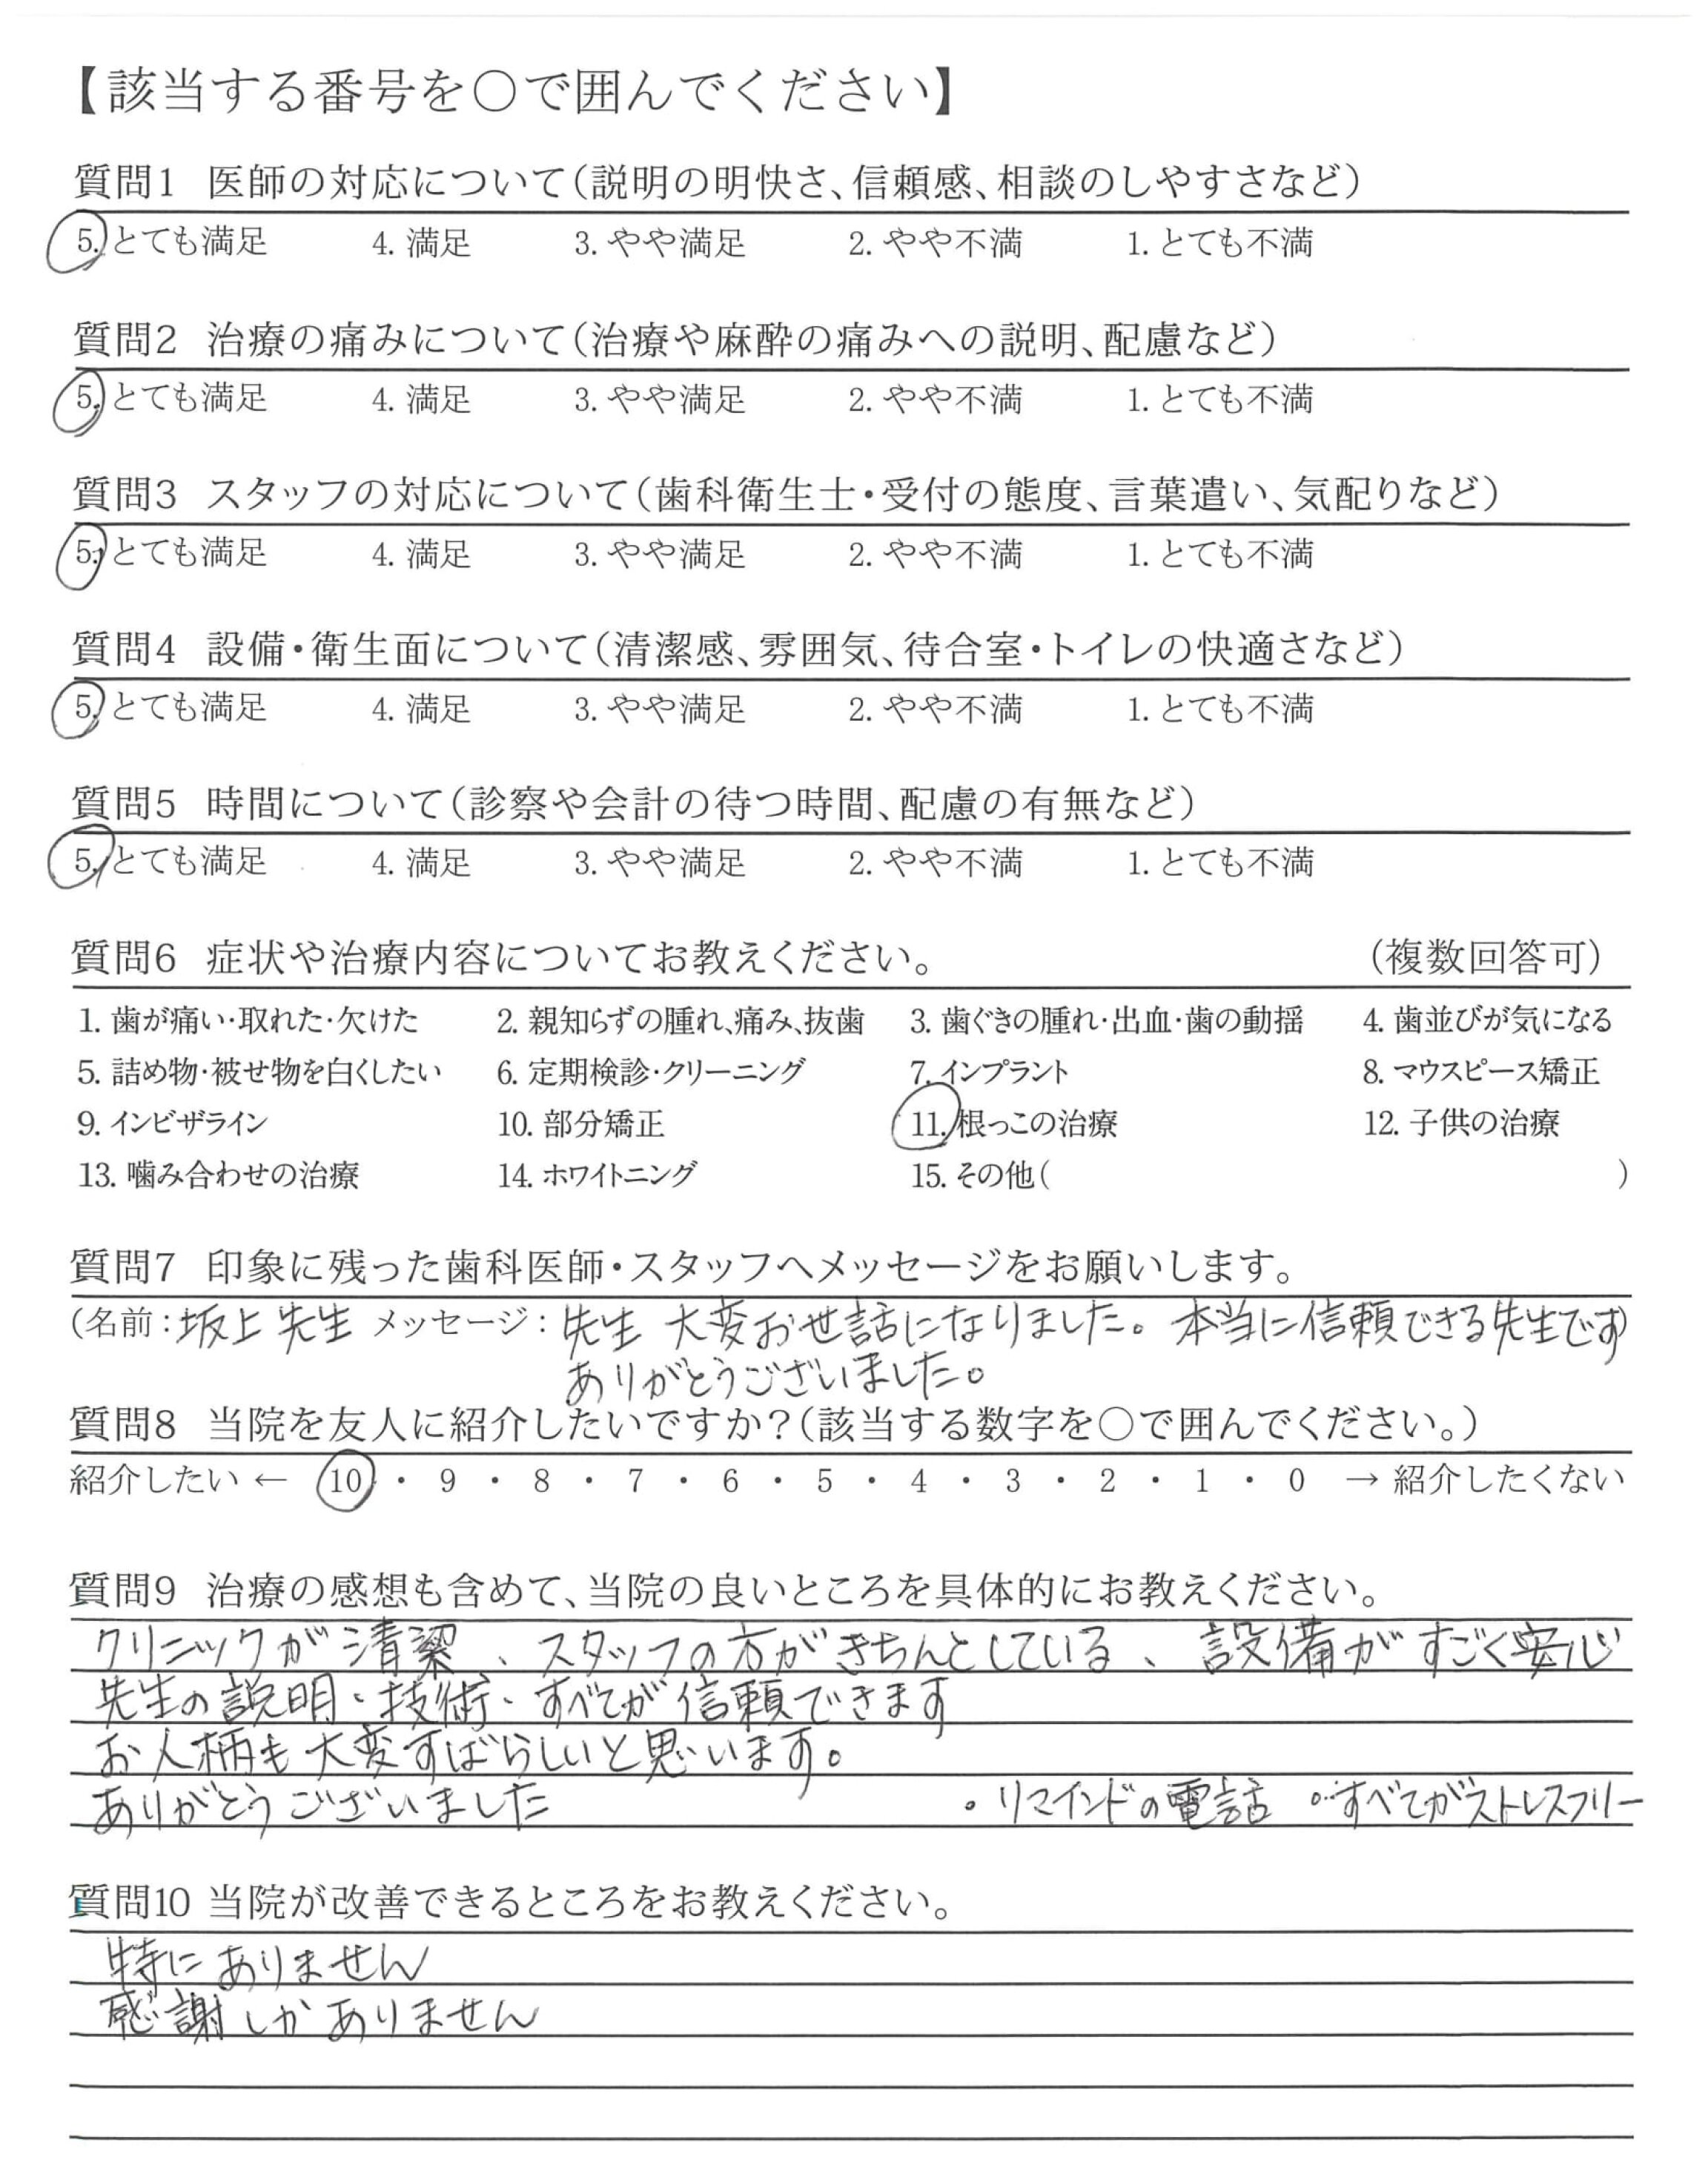 【該当する番号を○で囲んでください】
質問1 医師の対応について(説明の明快さ、信頼感、相談のしやすさなど)
5. とても満足 4. 満足 3. やや満足 2. やや不満 1. とても不満
質問2 治療の痛みについて(治療や麻酔の痛みへの説明、配慮など)
5. とても満足 4. 満足 3. やや満足 2. やや不満 1. とても不満
質問3 スタッフの対応について(歯科衛生士・受付の態度、言葉遣い、気配りなど)
5. とても満足 4. 満足 3. やや満足 2. やや不満 1. とても不満
質問4 設備・衛生面について(清潔感、雰囲気、待合室・トイレの快適さなど)
5. とても満足 4. 満足 3. やや満足 2. やや不満 1. とても不満
質問5 時間について(診察や会計の待つ時間、配慮の有無など)
5. とても満足 4. 満足 3. やや満足 2. やや不満 1. とても不満
質問6 症状や治療内容についてお教えください。 (複数回答可)
1. 歯が痛い・取れた・欠けた 2. 親知らずの腫れ、痛み、抜歯 3. 歯ぐきの腫れ・出血・歯の動揺 4. 歯並びが気になる
5. 詰め物・被せ物を白くしたい 6. 定期検診・クリーニング 7. インプラント 8. マウスピース矯正
9. インビザライン 10. 部分矯正 11. 根っこの治療 12. 子供の治療
13. 噛み合わせの治療 14. ホワイトニング 15. その他( )
質問7 印象に残った歯科医師・スタッフへメッセージをお願いします。
(名前:坂上先生 メッセージ:先生 大変お世話になりました。本当に信頼できる先生です)
ありがとうございました。
質問8 当院を友人に紹介したいですか?(該当する数字を○で囲んでください。)
紹介したい ← 10 ・ 9 ・ 8 ・ 7 ・ 6 ・ 5 ・ 4 ・ 3 ・ 2 ・ 1 ・ 0 → 紹介したくない
質問9 治療の感想も含めて、当院の良いところを具体的にお教えください。
クリニックが清潔、スタッフの方がきちんとしている、設備がすごく安心
先生の説明・技術・すべてが信頼できます
お人柄も大変すばらしいと思います。
ありがとうございました ・リマインドの電話 ・すべてがストレスフリー
質問10 当院が改善できるところをお教えください。
特にありません
感謝しかありません